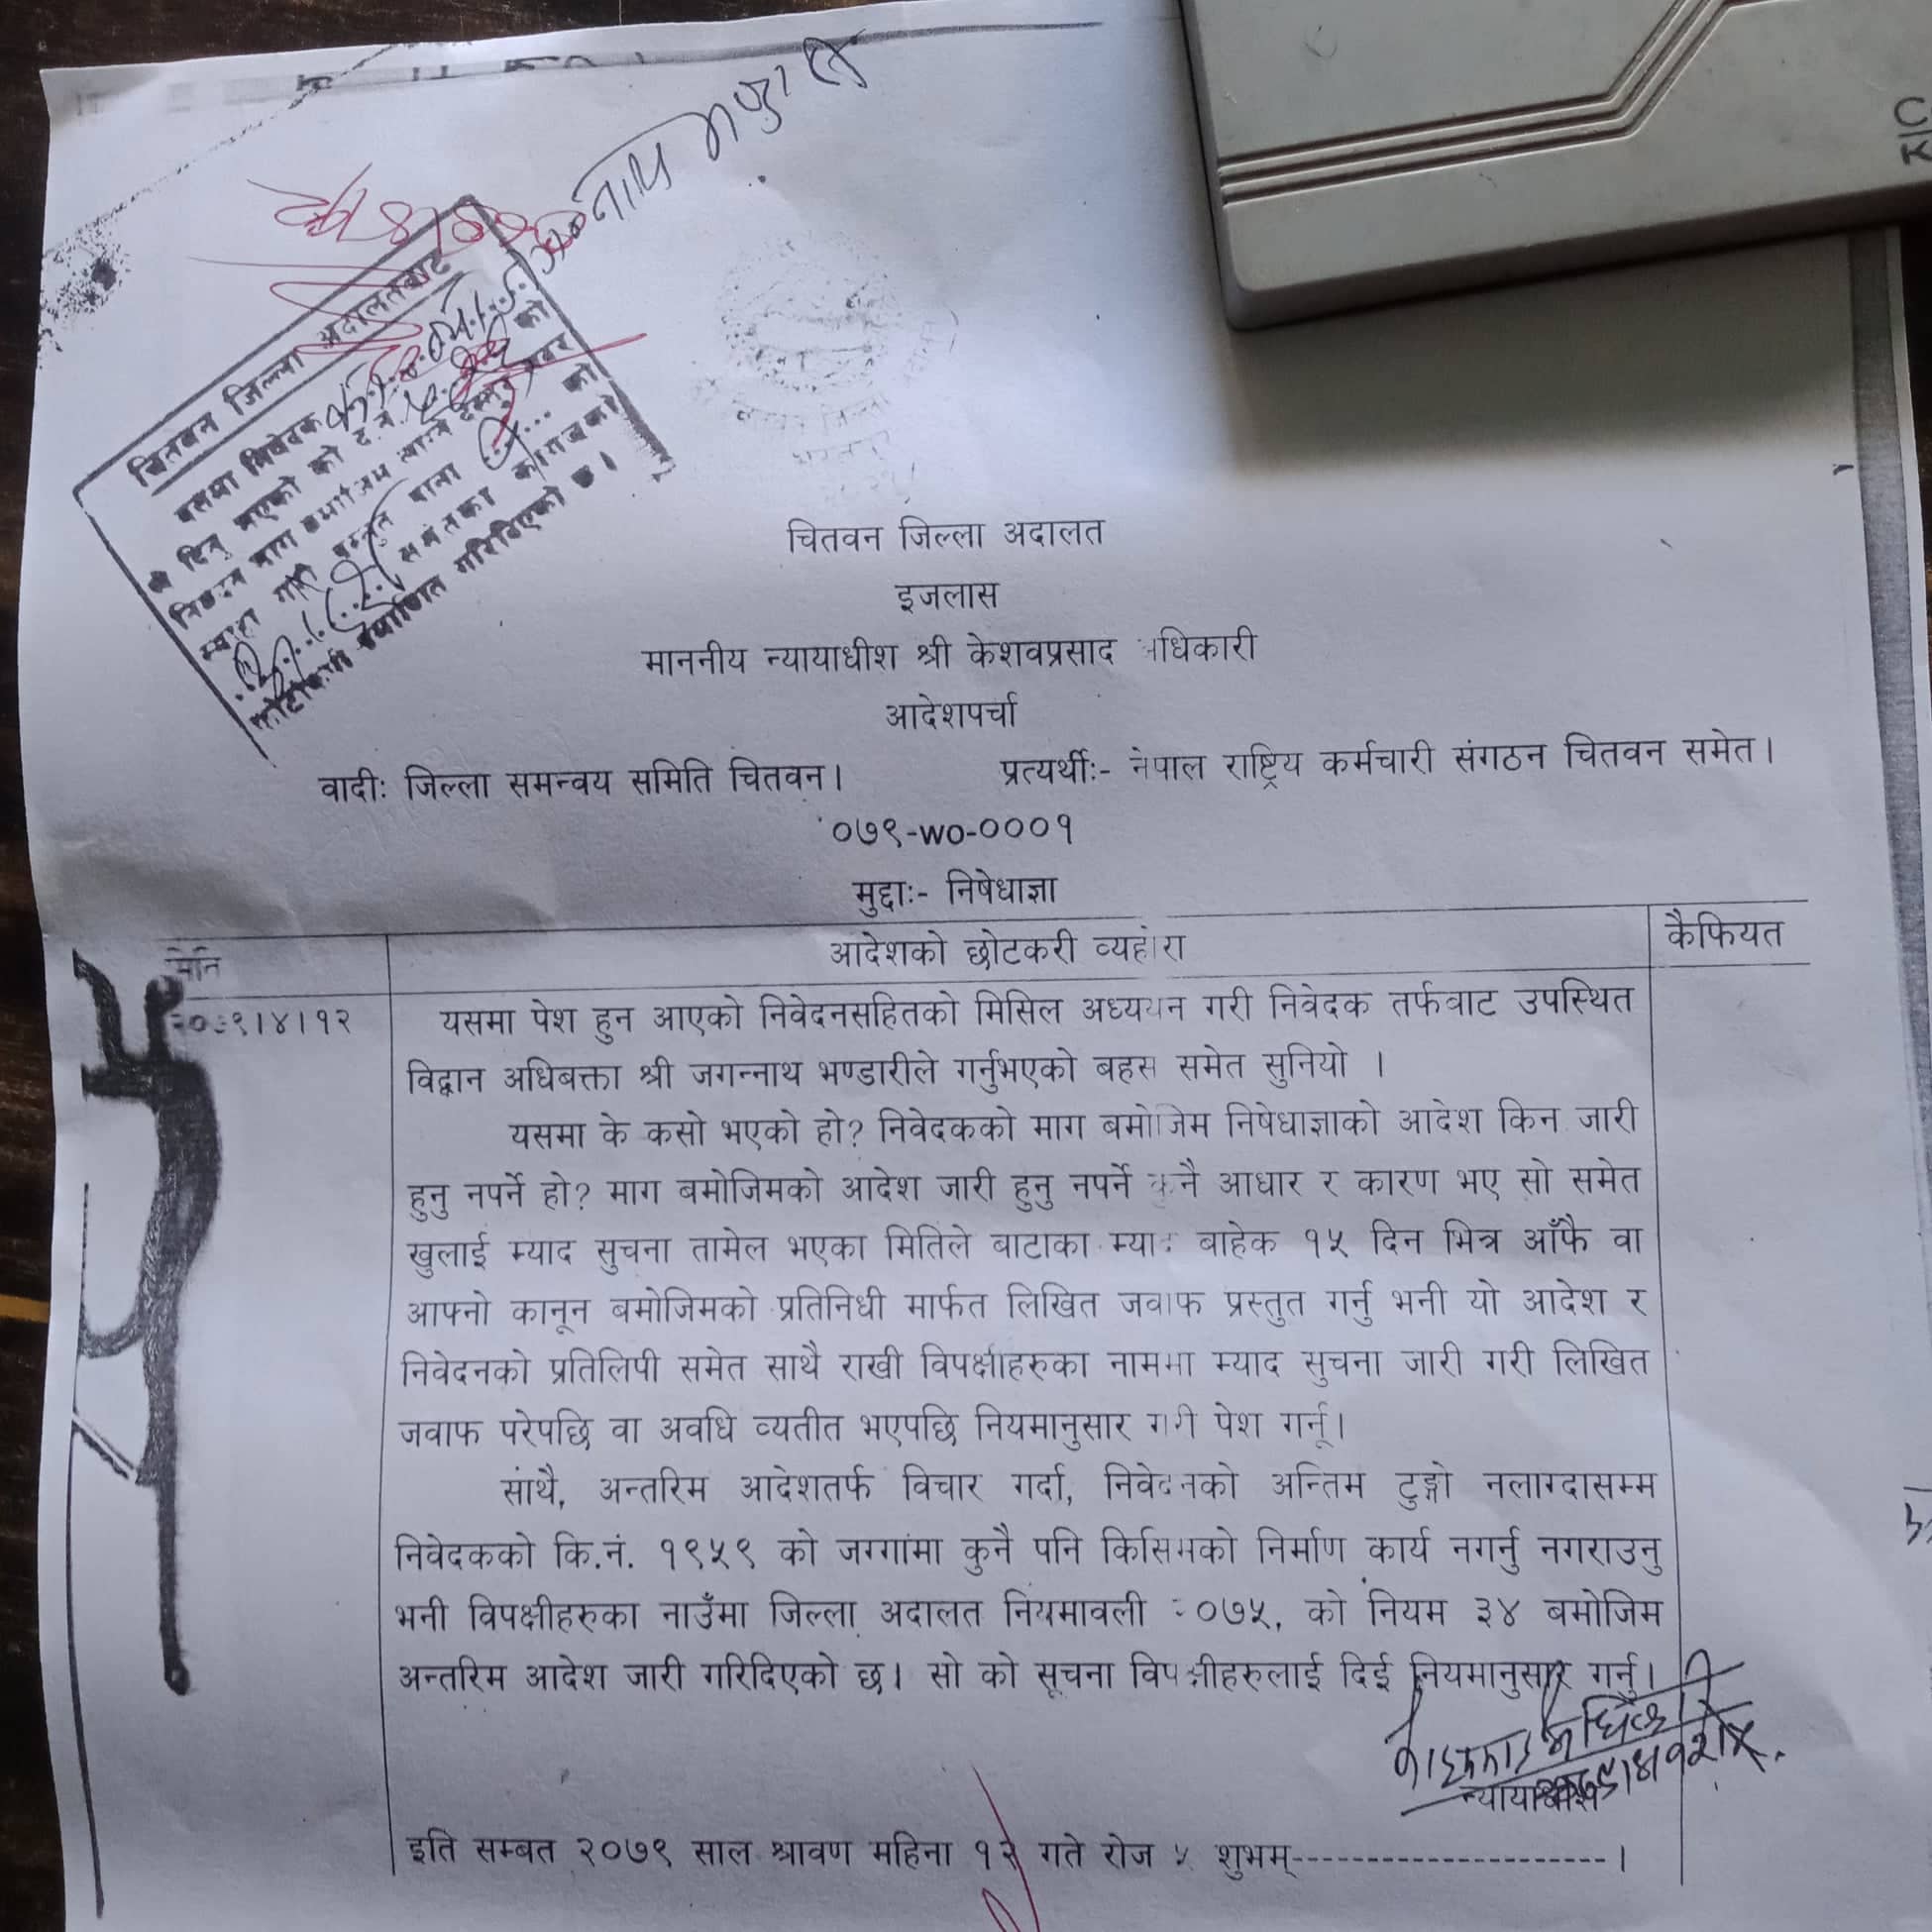 नाथ भण्डारी
चितवन जिल्ला अदालतबाट
यसमा निवेदक
को
निवेदन माग बमोजिम
को
समेतका कागजको
फोटोकपी प्रमाणित गरिदिएको छ।
चितवन जिल्ला अदालत
इजलास
माननीय न्यायाधीश श्री केशवप्रसाद अधिकारी
आदेशपर्चा
वादीः जिल्ला समन्वय समिति चितवन। प्रत्यर्थीः- नेपाल राष्ट्रिय कर्मचारी संगठन चितवन समेत।
०७९-WO-०००१
मुद्दाः- निषेधाज्ञा
मिति आदेशको छोटकरी व्यहोरा कैफियत
२०७९।४।१२ यसमा पेश हुन आएको निवेदनसहितको मिसिल अध्ययन गरी निवेदक तर्फवाट उपस्थित
विद्वान अधिबक्ता श्री जगन्नाथ भण्डारीले गर्नुभएको बहस समेत सुनियो ।
यसमा के कसो भएको हो? निवेदकको माग बमोजिम निषेधाज्ञाको आदेश किन जारी
हुनु नपर्ने हो? माग बमोजिमको आदेश जारी हुनु नपर्ने कुनै आधार र कारण भए सो समेत
खुलाई म्याद सुचना तामेल भएका मितिले बाटाका म्याद बाहेक १५ दिन भित्र आँफै वा
आफ्नो कानून बमोजिमको प्रतिनिधी मार्फत लिखित जवाफ प्रस्तुत गर्नु भनी यो आदेश र
निवेदनको प्रतिलिपी समेत साथै राखी विपक्षीहरुका नाममा म्याद सुचना जारी गरी लिखित
जवाफ परेपछि वा अवधि व्यतीत भएपछि नियमानुसार गरी पेश गर्नू।
साथै, अन्तरिम आदेशतर्फ विचार गर्दा, निवेदनको अन्तिम टुङ्गो नलाग्दासम्म
निवेदकको कि.नं. १९५९ को जग्गामा कुनै पनि किसिमको निर्माण कार्य नगर्नु नगराउनु
भनी विपक्षीहरुका नाउँमा जिल्ला अदालत नियमावली २०७५, को नियम ३४ बमोजिम
अन्तरिम आदेश जारी गरिदिएको छ। सो को सूचना विपक्षीहरुलाई दिई नियमानुसार गर्नु।
न्यायाधीश
इति सम्बत २०७९ साल श्रावण महिना १२ गते रोज ५ शुभम्----------------------।